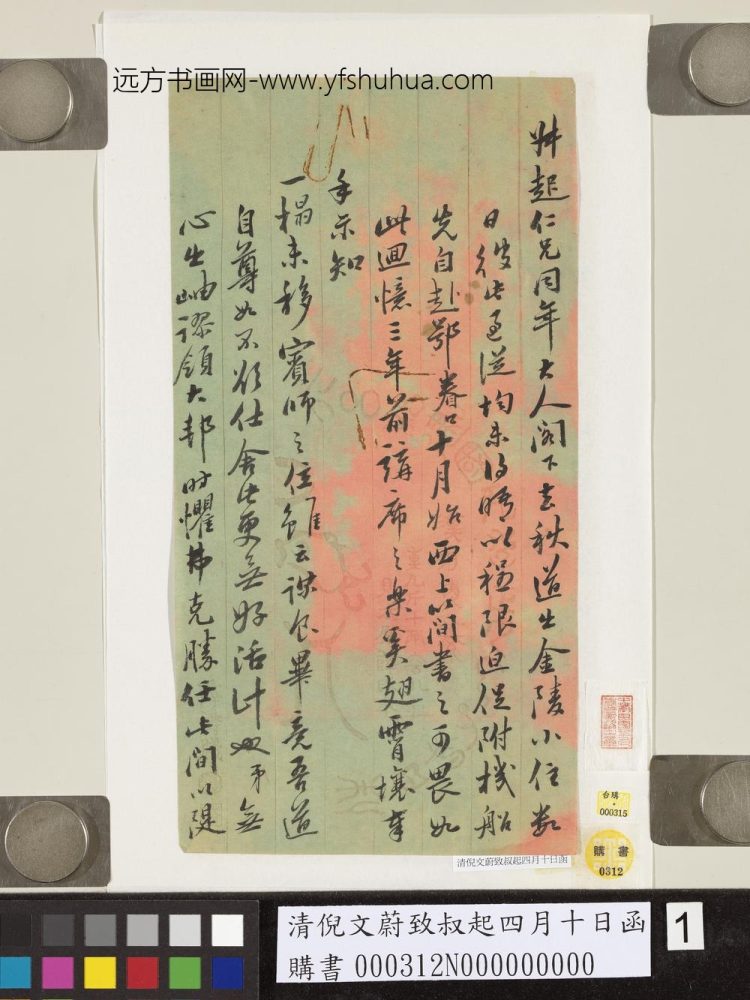 远方书画网-www.yfshuhua.com
叔起仁兄同年大人阁下去秋道出金陵小住数
日彼此過從均未得晤以程限迫促附機船
先自赴鄂眷口十月始西上簡書之可畏如
此迴憶三年前講席之樂奚翅霄壤奉
手示知
一榻未移賓師之位雖云課畢竟吾道
自尊如不欲仕舍此更無好活計也弟無
心出岫謬領大邦時懼弗克勝任此間以隄
清倪文蔚致叔起四月十日函
台購
000315
購書
0312
清倪文蔚致叔起四月十日函
購書 000312N000000000
1